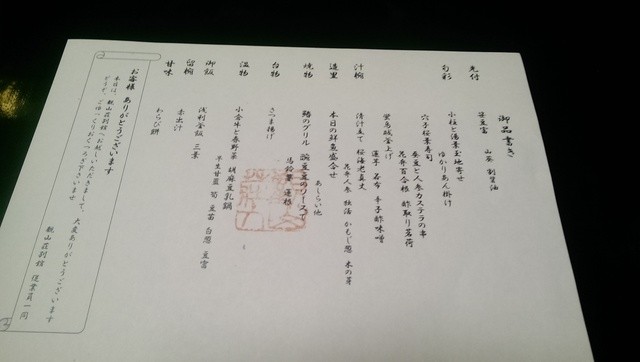 御品書き
先付
葵豆富 山葵 割醤油
旬彩
小柱と湯葉玉地寄せ
ゆかりあん掛け
穴子桜葉寿司
蚕豆と人参カステラの串
花弁百合根 酢取り茗荷
蛍烏賊釜上げ
蓮芋 若布 辛子酢味噌
汁椀
清汁立て 桜海老真丈
花弁人参 独活 かもじ葱 木の芽
造里
本日の鮮魚盛合せ
あしらい他
焼物
鰆のグリル 豌豆豆のソースで
馬鈴薯 蓮根
台物
さつま揚げ
温物
小倉牛と春野菜 胡麻豆乳鍋
芋生甘藍 筍 豆苗 白葱 豆富
御飯
浅利釜飯 三葉
留椀
赤出汁
甘味
わらび餅
お客様 ありがとうございます
本日は、観山荘別館へお越しいただきまして、大変ありがとうございます
どうぞ、ごゆっくりおくつろぎ下さいませ
観山荘別館 従業員一同